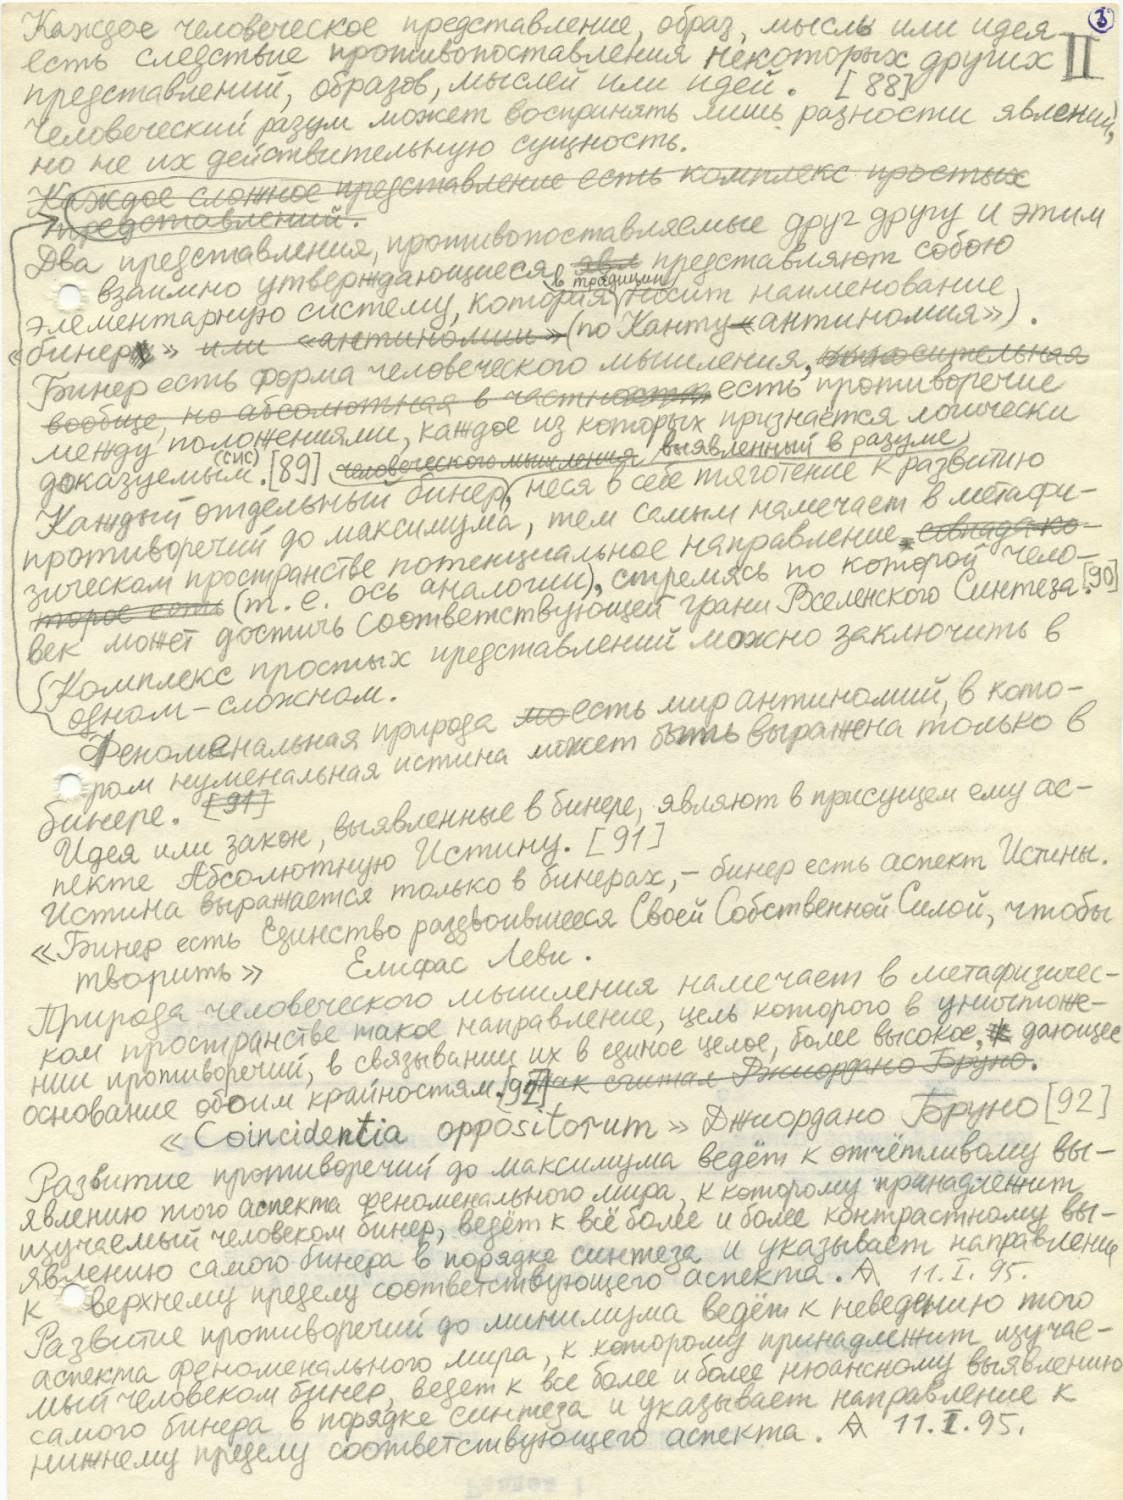 3
II
Каждое человеческое представление, образ, мысль или идея
есть следствие противопоставления некоторых других
представлений, образов, мыслей или идей. [88]
Человеческий разум может воспринять лишь разности явлений,
но не их действительную сущность.
Каждое сложное представление есть комплекс простых
представлений.
Два представления, противопоставляемые друг другу и этим
взаимно утверждающиеся явл представляют собою
элементарную систему, которая в традиции носит наименование
«бинер» или «антиномии» (по Канту – «антиномия»).
Бинер есть форма человеческого мышления,
вообще, но абсолютная в частности есть противоречие
между положениями, каждое из которых признаётся логически
доказуемым. (сис) [89] человеческого мышления выявленный в разуме,
Каждый отдельный бинер, неся в себе тяготение к развитию
противоречий до максимума, тем самым намечает в метафи-
зическом пространстве потенциальное направление,
торое есть (т. е. ось аналогии), стремясь по которой чело-
век может достичь соответствующей грани Вселенского Синтеза. [90]
Комплекс простых представлений можно заключить в
одном – сложном.
Феноменальная природа мо есть мир антиномий, в кото-
ром нуменальная истина может быть выражена только в
бинере. [91]
Идея или закон, выявленные в бинере, являют в присущем ему ас-
пекте Абсолютную Истину. [91]
Истина выражается только в бинерах, – бинер есть аспект Истины.
«Бинер есть Единство раздвоившееся Своей Собственной Силой, чтобы
творить» Елифас Леви.
Природа человеческого мышления намечает в метафизичес-
ком пространстве такое направление, цель которого в уничтоже-
нии противоречий, в связывании их в единое целое, более высокое, дающее
основание обоим крайностям. [92] Так считал Джиордано Бруно.
«Coincidentia oppositorum» Джиордано Бруно [92]
Развитие противоречий до максимума ведёт к отчётливому вы-
явлению того аспекта феноменального мира, к которому принадлежит
изучаемый человеком бинер, ведёт к всё более и более контрастному вы-
явлению самого бинера в порядке синтеза и указывает направление
к верхнему пределу соответствующего аспекта. 11.I.95.
Развитие противоречий до минимума ведёт к неведению того
аспекта феноменального мира, к которому принадлежит изучае-
мый человеком бинер, ведет к все более и более нюансному выявлению
самого бинера в порядке синтеза и указывает направление к
нижнему пределу соответствующего аспекта. 11.I.95.